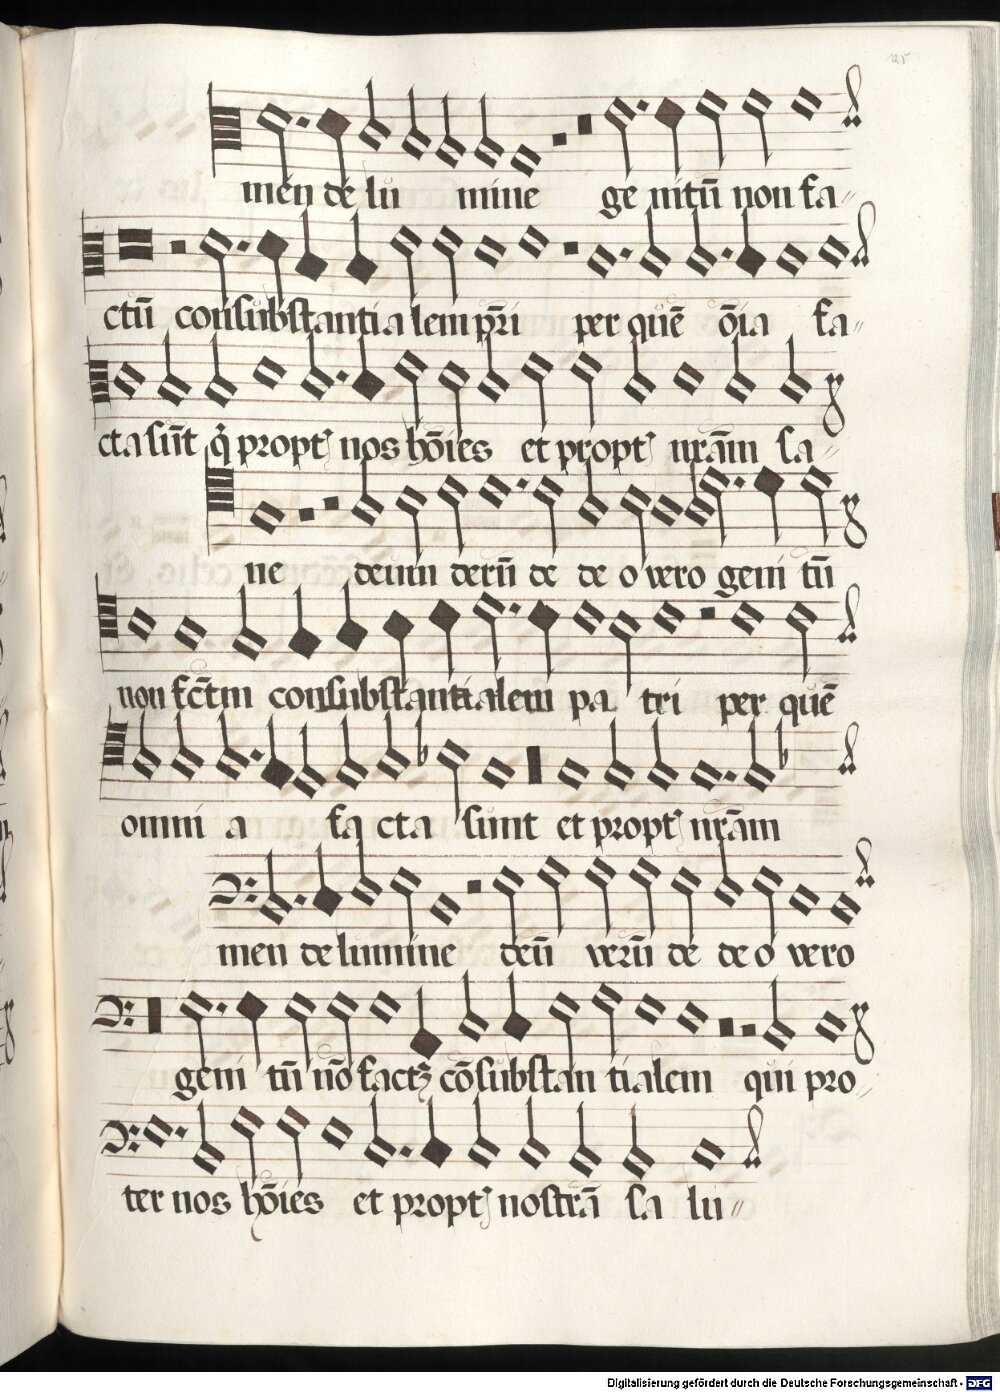 125
men de lu mine ge nitū non fa
ctū consubstantia lem pr̄i per quē ōia fa
cta sūt q̇ propt nos hōies et propt nrām sa
ne deum verū de de o vero geni tū
non fc̄tm consubstantialem pa tri per quē
omni a fa cta sunt et propt nrām
men de lumine deū verū de de o vero
geni tū nō factꝫ cōsubstan tialem qui pro
ter nos hōies et propt nostrā sa lu
Digitalisierung gefördert durch die Deutsche Forschungsgemeinschaft - DFG